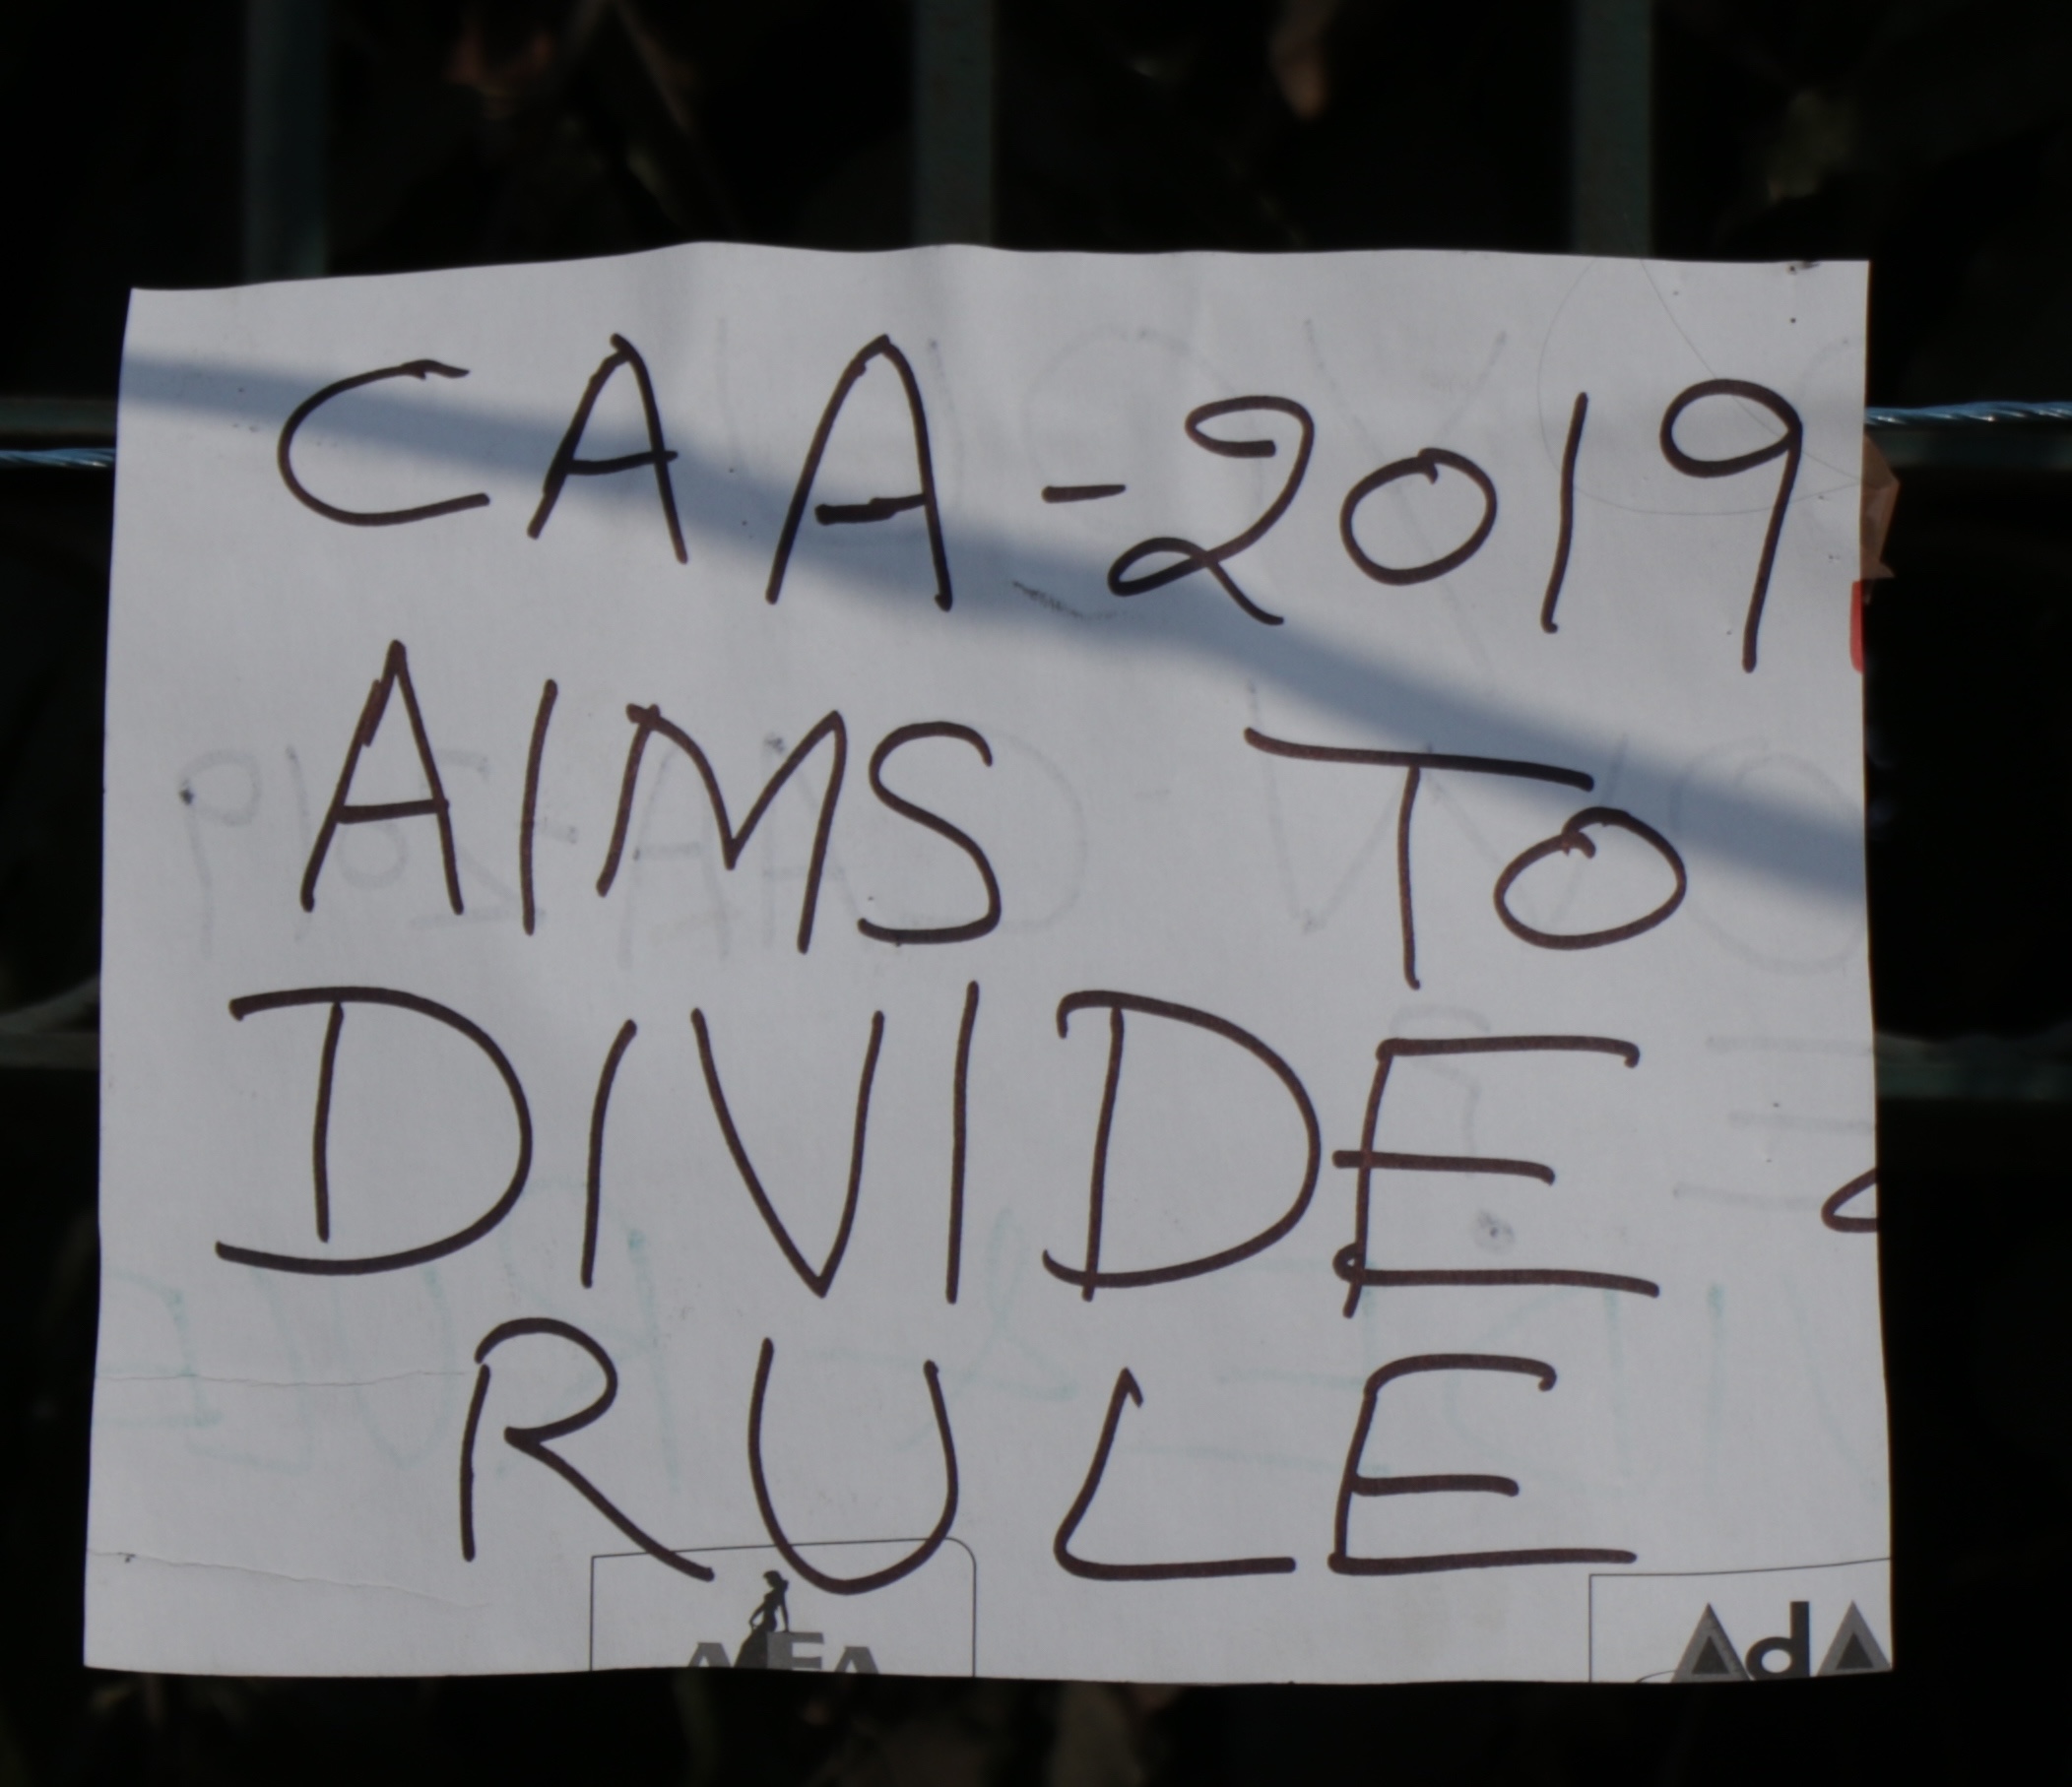 CAA-2019
AIMS TO
DIVIDE
RULE
AdA